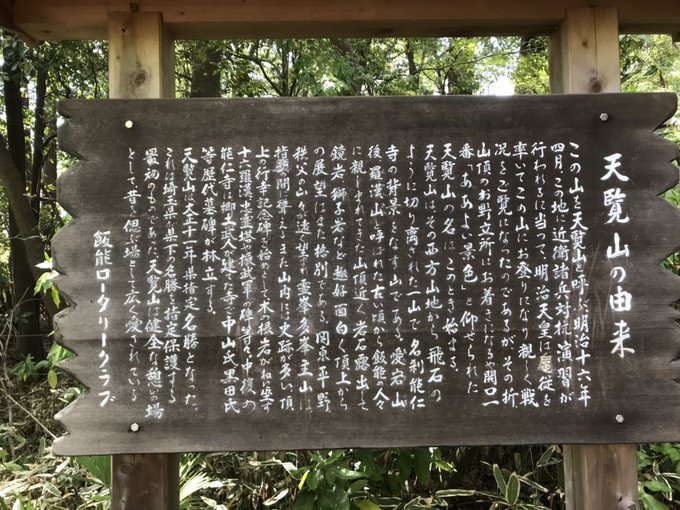 天覧山の由来
この山を天覧山と呼ぶ。明治十六年
四月、この地に近衛諸兵対抗演習が
行われるに当って、明治天皇は扈従を
率いてこの山にお登りになり親しく戦
況をご覧になったのであるが、その折、
山頂のお野立所にお着きになるや開口一
番「ああよい景色」と仰せられた
天覧山の名は、このとき始まる。
天覧山はその西方山地から、飛石の
ように切り離された一山で、名刹能仁
寺の背景をなす山である。愛宕山
後羅漢山と呼ばれた古い頃から飯能の人々
に親しまれてきた。山頂近く岩石露出して
鏡岩、獅子岩など趣好面白く、頂上から
の展望はまた格別である。関東の平野、
秩父の山々が遠望され、霊峯多峯主山は
指顧の間に聳える。また山内には史跡が多い。頂
上の行幸記念碑を始めとして、木の根岩の
十六羅漢、忠霊塔、振武軍の碑等々、中腹の
能仁寺は郷土武人が建てた寺で中山氏、黒田氏
等歴代墓碑が林立する。
天覧山は大正十一年県指定名勝となった。
これは埼玉県が県下の名勝を指定保護する
最初のものであった。天覧山は健全な憩いの場
として、昔を偲ぶ場として広く愛されている
飯能ロータリークラブ